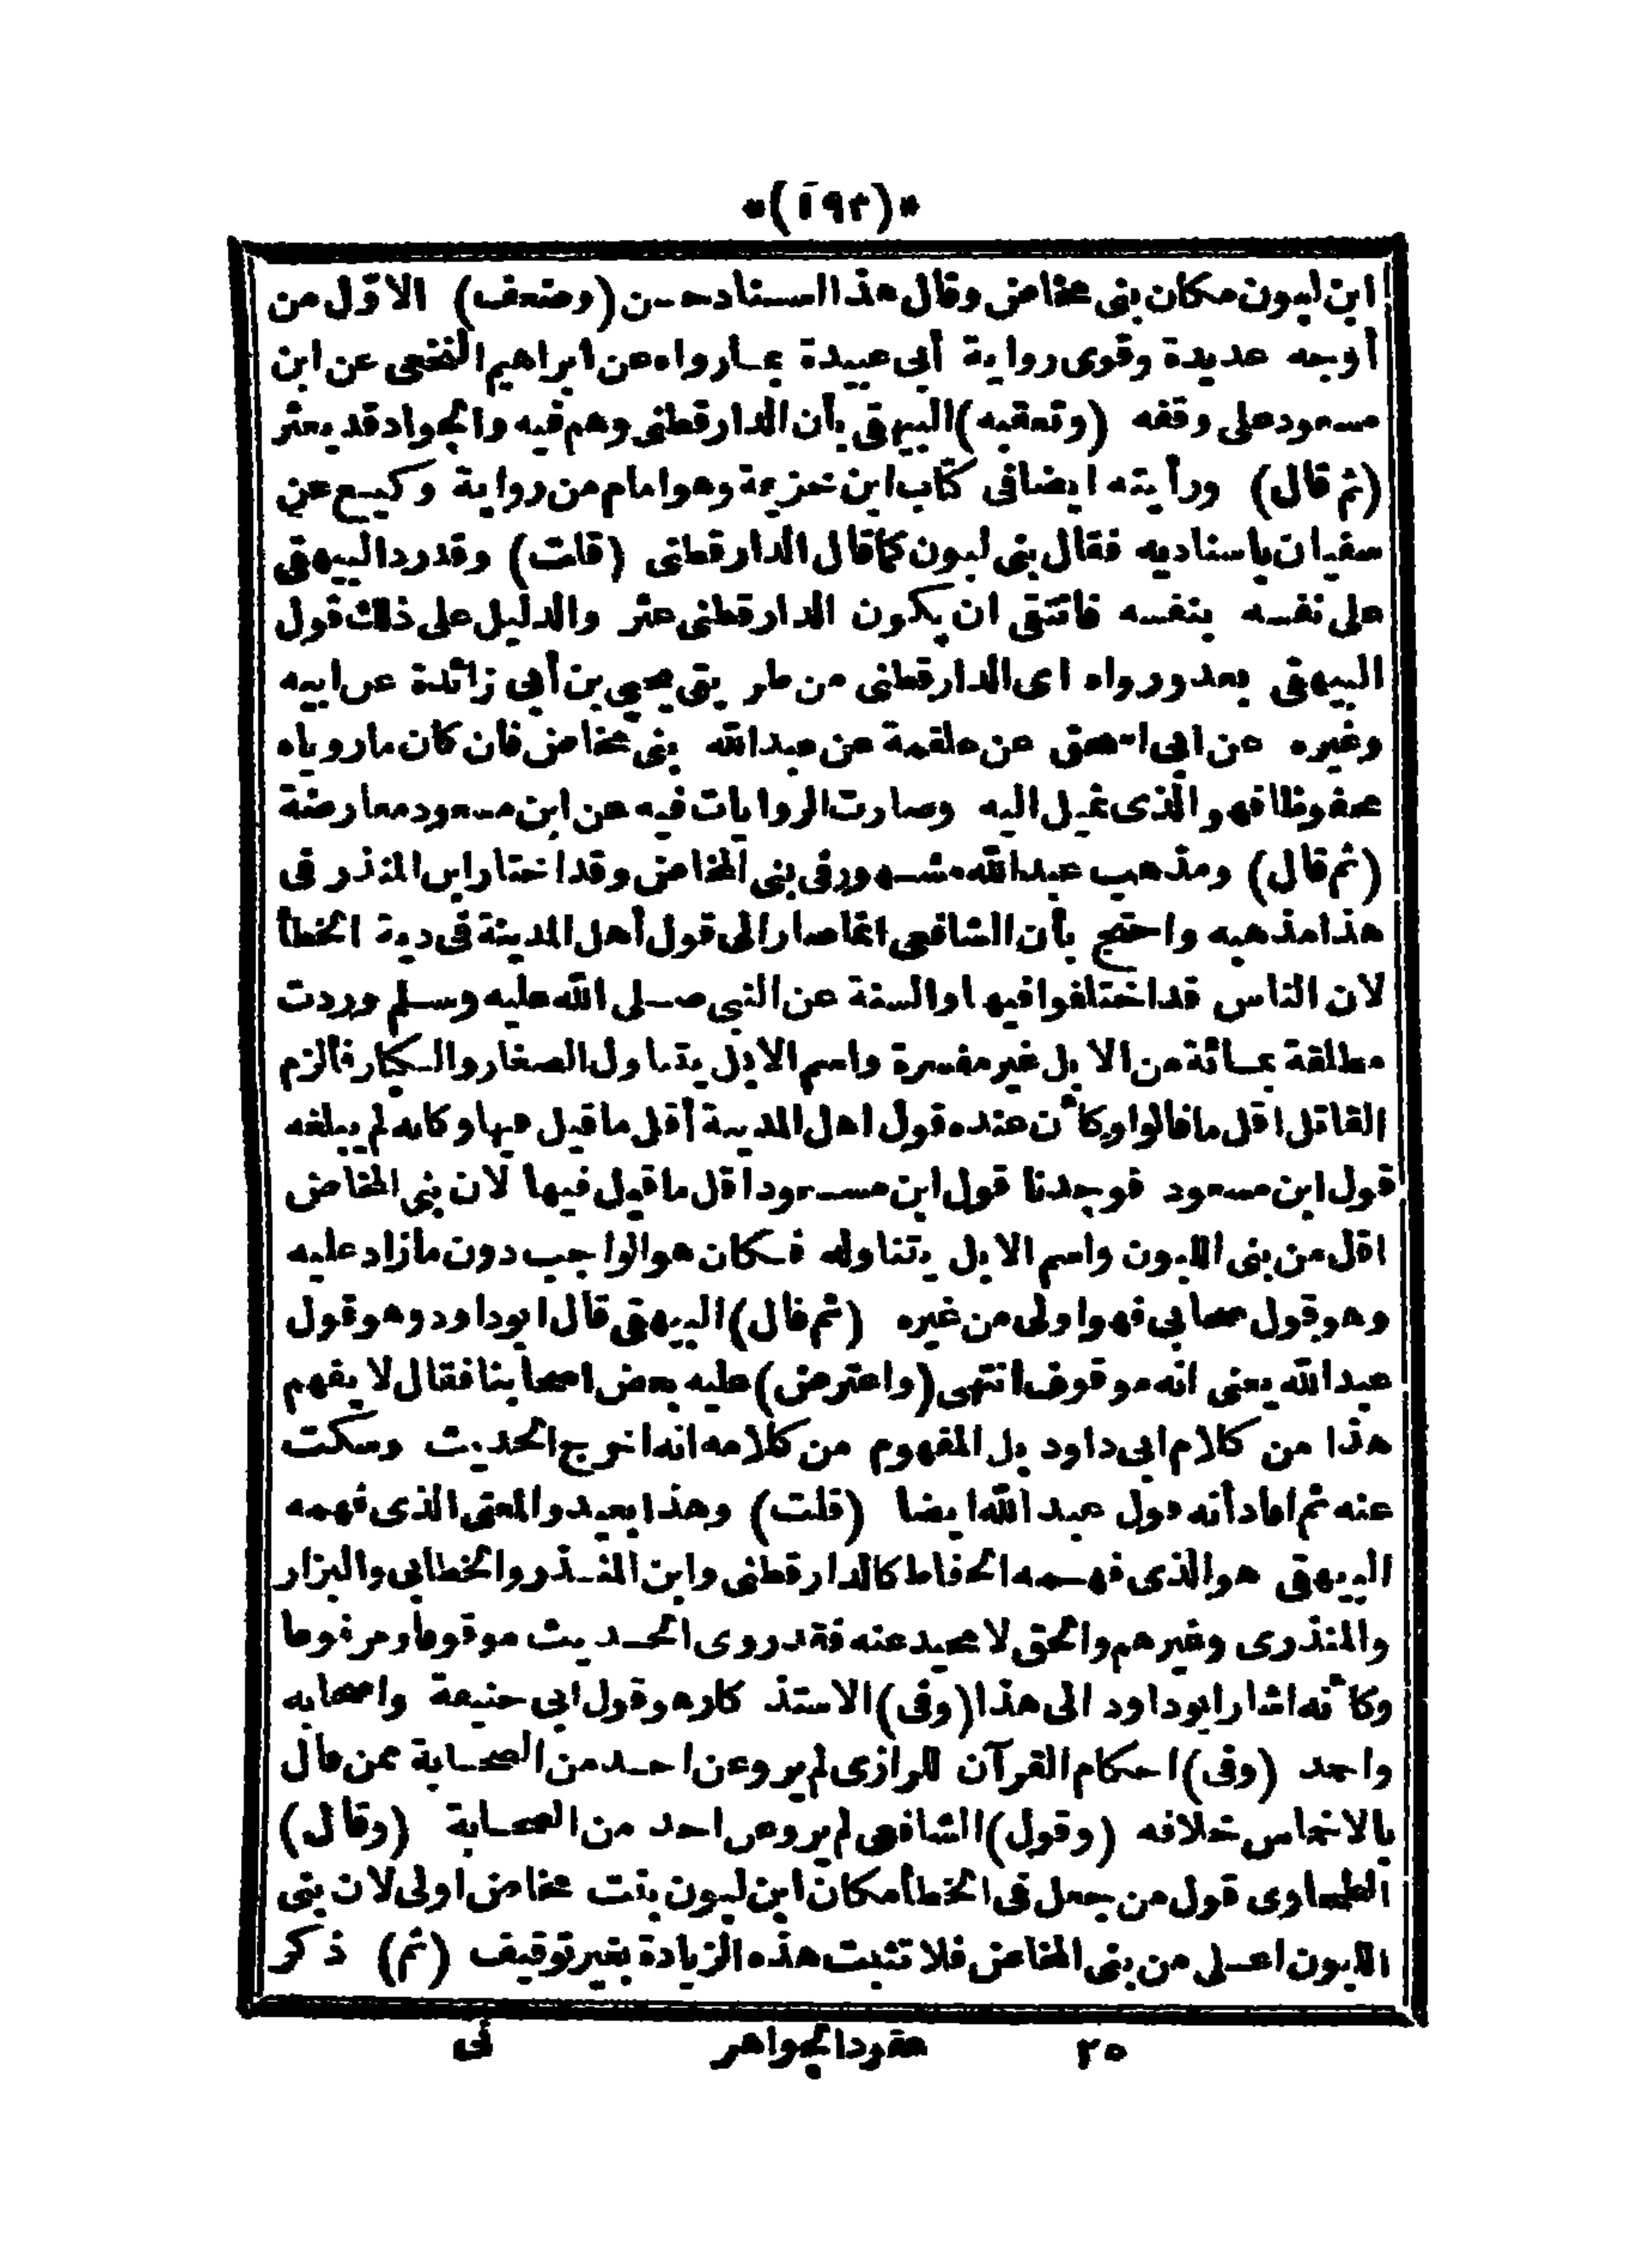 *(١٩٣)*
ابن لبون مكان بنى مخاض وقال هذا اسناد حسن (وضعف) الاوّل من
أوجه عديدة وقوى رواية أبى عبيدة بما رواه عن ابراهيم النخعى عن ابن
مسعود على وقفه (وتعقبه) البيهقى بأن الدارقطنى وهم فيه والجواد قد يعثر
(ثم قال) ورأيته ايضا فى كتاب ابن خزيمة وهو امام من رواية وكيع عن
سفيان باسناديه فقال بنى لبون كما قال الدارقطنى (قلت) وقد رد البيهقى
على نفسه بنفسه فانتفى ان يكون الدارقطنى عثر والدليل على ذلك قول
البيهقى بعد ورواه اى الدارقطنى من طريق يحيى بن أبى زائدة عن ابيه
وغيره عن ابى اسحق عن علقمة عن عبد الله بنى مخاض فان كان ما روياه
محفوظا فهو الذى نميل اليه وصارت الروايات فيه عن ابن مسعود معارضة
(ثم قال) ومذهب عبد الله مشهور فى بنى المخاض وقد اختار ابن المنذر فى
هذا مذهبه واحتج بأن الشافعى انما صار الى قول أهل المدينة فى دية الخطأ
لان الناس قد اختلفوا فيها والسنة عن النبى صلى الله عليه وسلم وردت
مطلقة بمائة من الابل غير مفسرة واسم الابل يتناول الصغار والكبار فألزم
القاتل اقل ما قالوا وكأن عنده قول اهل المدينة أقل ما قيل فيها وكانه لم يبلغه
قول ابن مسعود فوجدنا قول ابن مسعود اقل ما قيل فيها لان بنى المخاض
اقل من بنى اللبون واسم الابل يتناوله فكان هو الواجب دون ما زاد عليه
وهو قول صحابى فهو اولى من غيره (ثم قال) البيهقى قال ابو داود وهو قول
عبد الله يعنى انه موقوف انتهى (واعترض) عليه بعض اصحابنا فقال لا يفهم
هذا من كلام ابى داود بل المفهوم من كلامه انه اخرج الحديث وسكت
عنه ثم افاد أنه قول عبد الله ايضا (قلت) وهذا بعيد والمعنى الذى فهمه
البيهقى هو الذى فهمه الحفاظ كالدارقطنى وابن المنذر والخطابى والبزار
والمنذرى وغيرهم والحق لا محيد عنه فقد روى الحديث موقوفا ومرفوعا
وكأنه اشار ابو داود الى هذا (وفى) الاستذكار هو قول ابى حنيفة واصحابه
واحمد (وفى) احكام القرآن للرازى لم يرو عن احد من الصحابة ممن قال
بالاخماس خلافه (وقول) الشافعى لم يرو عن احد من الصحابة (وقال)
الطحاوى قول من جعل فى الخطأ مكان ابن لبون بنت مخاض اولى لان بنى
اللبون اعلى من بنى المخاض فلا تثبت هذه الزيادة بغير توقيف (ثم) ذكر
٢٥ عقود الجواهر فى